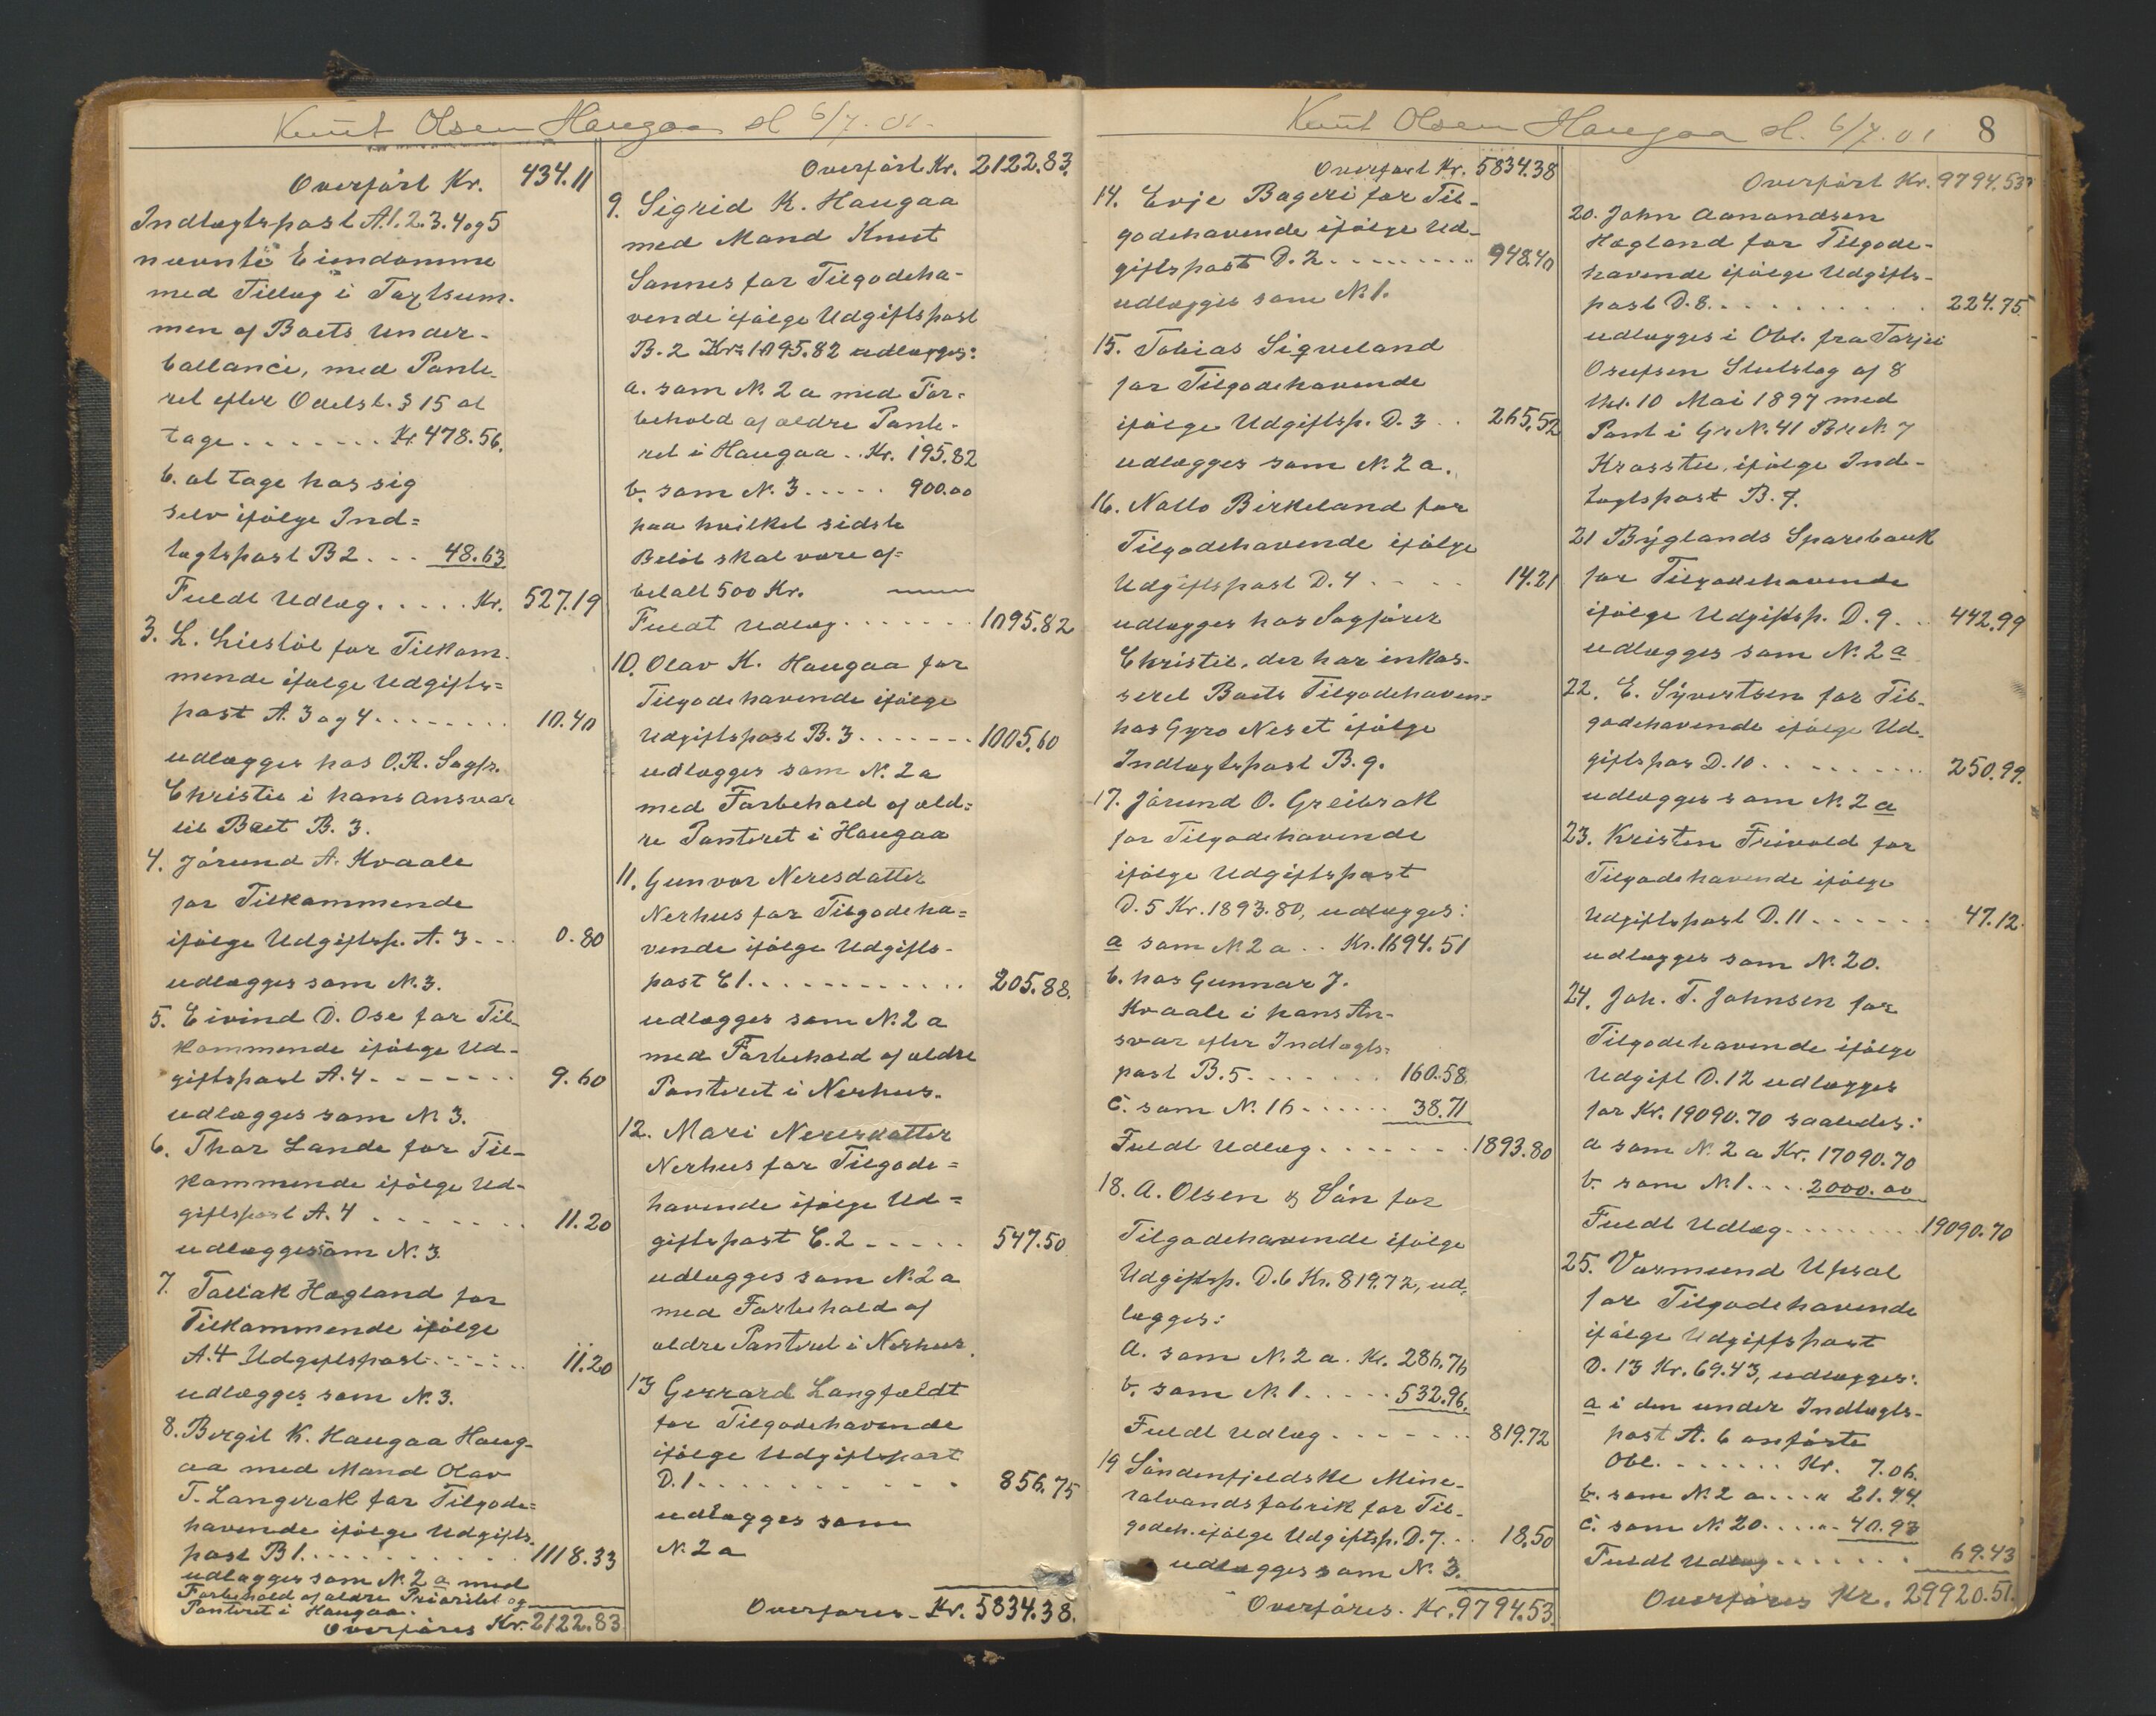 Knut Olsen Haugaa sl 6/7. 01.
Overført Kr. 434.11
Indtægtspost A.1.2.3.4 og 5
nævnte Eiendomme
med Tillæg i Taxtsum-
men af Boets Under-
ballance, med Pante-
ret efter Odelsl. § 15 at
tage . . . . . . . Kr 478.56.
b. at tage hos sig
selv ifølge Ind=
tægtspost B2 . . . 48.63
Fuldt Udlæg . . . . . Kr. 527.19
3. L. Liestøl for Tilkom-
mende ifølge Udgifts=
post A. 3 og 4 . . . . . . . . 10.40
udlægges hos O.R. Sagfr.
Christie i hans Ansvar
til Boet B. 3.
4. Jørund A. Kvaale
for Tilkommende
ifølge Udgiftsp. A. 3 . . . 0.80
udlægges som N. 3.
5. Eivind D. Ose for Til-
kommende ifølge Ud-
giftspost A.4 . . . . . . . 9.60
udlægges som N. 3.
6. Thor Lande for Til-
kommende ifølge Ud-
giftspost A.4 . . . . . . . 11.20
udlægges som N. 3
7. Tallak Hægland for
Tilkommende ifølge
A.4 Udgiftspost . . . . . . 11.20
udlægges som N. 3.
8. Bergit K. Haugaa Haug-
aa med Mand Olav
T. Langerak for Tilgode=
havende ifølge Udgifts-
post B1. . . . . . . . . . . 1118.33
udlægges som N. 2 a med
Forbehold af ældre Prioritet og
Panteret i Haugaa.
Overføres Kr. 2122.83
Overført Kr. 2122.83.
9. Sigrid K. Haugaa
med Mand Knut
Sannes for Tilgodeha-
vende ifølge Udgiftspost
B. 2 Kr. 1095.82 udlægges:
a. som N. 2 a med For=
behold af ældre Pante-
ret i Haugaa . . Kr. 195.82
b. som N. 3 . . . . . 900.00
paa hvilket sidste
Beløb skal være af=
betalt 500 Kr.
Fuldt Udlæg . . . . . . . 1095.82
10. Olav K. Haugaa for
Tilgodehavende ifølge
Udgiftspost B. 3 . . . . . . . 1005.60
udlægges som N. 2 a
med Forbehold af æld=
re Panteret i Haugaa
11. Gunvor Neresdatter
Nerhus for Tilgodeha=
vende ifølge Udgifts-
post C1. . . . . . . . . . . . 205.88.
udlægges som N. 2 a
med Forbehold af ældre
Panteret i Nerhus.
12. Mari Neresdatter
Nerhus for Tilgode=
havende ifølge Ud=
giftspost C. 2 . . . . . 547.50
udlægges som N. 2 a
med Forbehold af
ældre Panteret i Nerhus.
13 Gerrard Langfeldt
for Tilgodehavende
ifølge Udgiftspost
D. 1 . . . . . . . . . . . 856.75
udlægges som
N. 2 a
Overføres Kr. 5834.38.
Knut Olsen Haugaa sl. 6/7. 01 8
Overført Kr. 5834.38
14. Evje Bageri for Til-
godehavende ifølge Ud-
giftspost D. 2 . . . . . . . . . 948.40
udlægges som N. 1.
15. Tobias Siqveland
for Tilgodehavende
ifølge Udgiftsp. D. 3 . . 265.52
udlægges som N. 2 a.
16. Nallo Birkeland for
Tilgodehavende ifølge
Udgiftspost D. 4 . . . . 14.21
udlægges hos Sagfører
Christie, der har inkas-
seret Boets Tilgodehaven=
hos Gyro Neset ifølge
Indtægtspost B. 9.
17. Jørund O. Greibrok
for Tilgodehavende
ifølge Udgiftspost
D. 5 Kr. 1893.80, udlægges:
a som N. 2 a . . Kr. 1694.51
b. hos Gunnar J.
Kvaale i hans An-
svar efter Indtægts-
post B. 5. . . . . . . . 160.58
c. som N. 16 . . . . . . 38.71
Fuldt Udlæg . . . . . . . 1893.80
18. A. Olsen & Søn for
Tilgodehavende ifølge
Udgiftsp. D. 6 Kr. 819.72, ud-
lægges:
a. som N. 2 a. Kr. 286.76
b. som N. 1 . . . . . 532.96.
Fuldt Udlæg . . . . . . . 819.72
19 Søndenfjeldske Mine-
ralvandsfabrik for Til-
godeh. ifølge Udgiftsp. D. 7. . . 18.50
udlægges som N. 3.
Overføres. Kr. 9794.53
Overført Kr. 9794.53
20. John Aanondsen
Hægland for Tilgode-
havende ifølge Udgifts-
post D. 8. . . . . . . . . . 224.75
udlægges i Obl. fra Tarjei
Osufsen Stutslog af 8
thl. 10 Mai 1897 med
Pant i Gr. N. 41 Br. N. 7
Krosstu, ifølge Ind-
tægtspost B. 7.
21 Byglands Sparebank
for Tilgodehavende
ifølge Udgiftsp. D. 9. . . 442.99
udlægges som N. 2 a
22. E. Syvertsen for Til-
godehavende ifølge Ud-
giftspos D. 10 . . . . . . . . . 250.99.
udlægges som N. 2 a
23. Kristen Frivold for
Tilgodehavende ifølge
Udgiftspost D. 11 . . . . . . 47.12
udlægges som N. 20.
24. Joh. T. Johnsen for
Tilgodehavende ifølge
Udgift D. 12 udlægges
for Kr. 19090.70 saaledes:
a som N. 2 a Kr. 17090.70
b. som N. 1 . . . . 2000.00
Fuldt Udlæg . . . . . . . . 19090.70
25. Vormund Upsal
for Tilgodehavende
ifølge Udgiftspost
D. 13 Kr. 69.43, udlægges:
a i den under Indtægts-
post A. 6 anførte
Obl. . . . . . . . Kr. 7.06.
b. som N. 2 a . . . " 21.44
c. som N. 20. . . . . " 40.93
Fuldt Udlæg . . . . . . . 69.43
Overføres Kr. 29920.51.